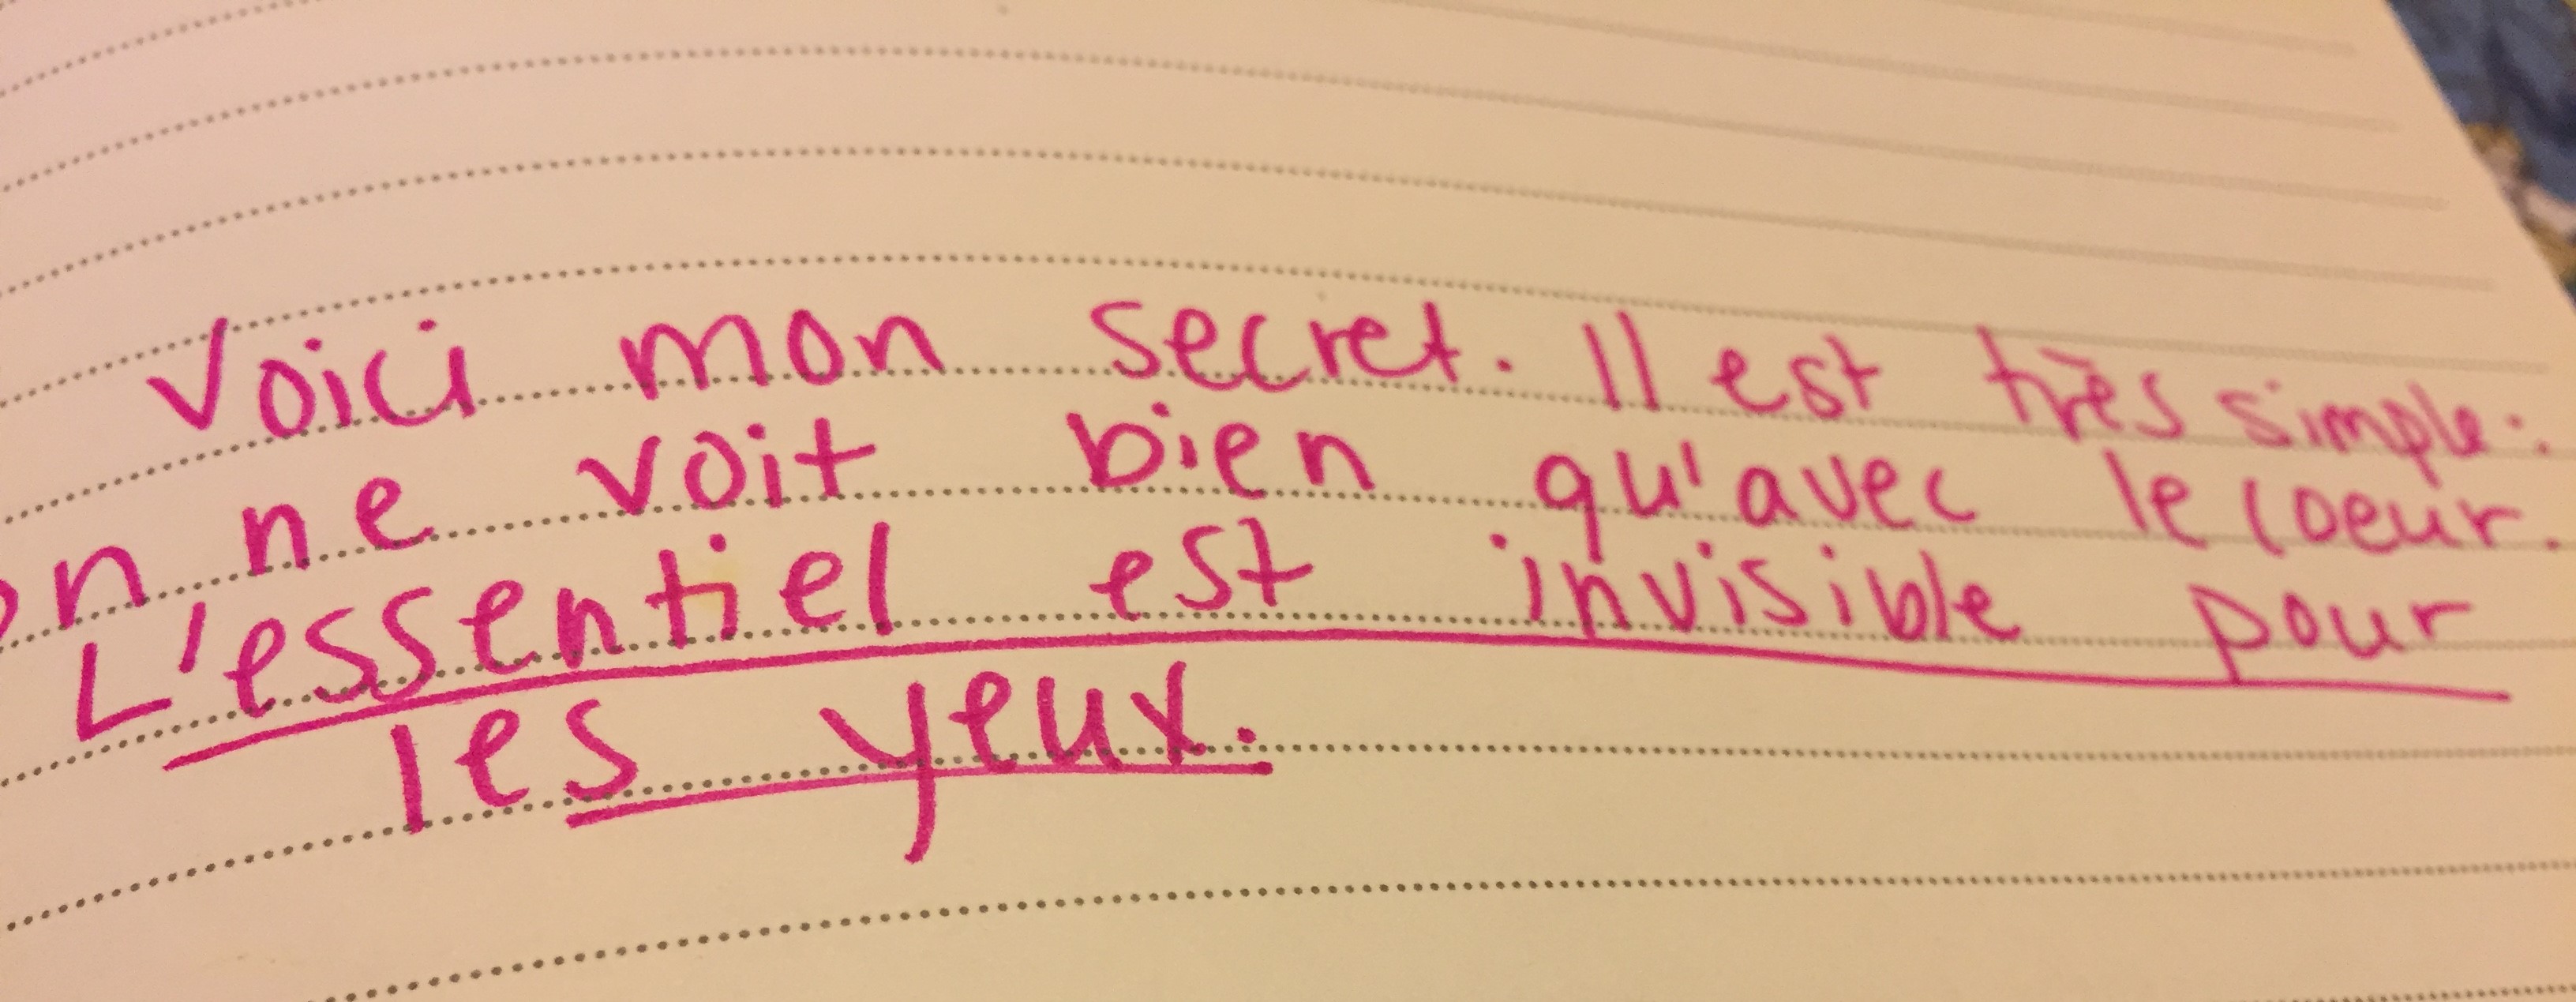 Voici mon secret. Il est très simple:
on ne voit bien qu'avec le coeur.
L'essentiel est invisible pour
les yeux.